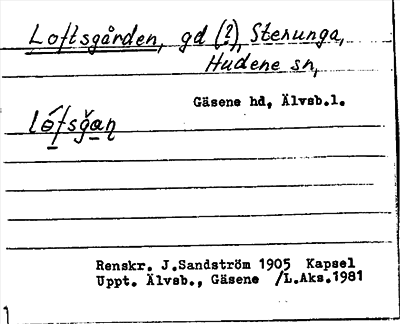 Loftsgården, gd (?), Stenunga,
Hudene sn,
Gäsene hd, Älvsb.l.
Renskr. J.Sandström 1905 Kapsel
Uppt. Älvsb., Gäsene /L.Aks.1981